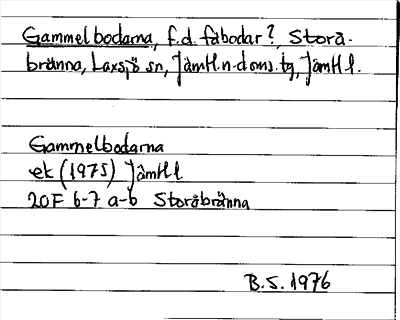 Gammelbodarna, f.d. fäbodar?, Storå-
bränna, Laxsjö sn, Jämtl.n.doms.tg, Jämtl l.
Gammelbodarna
ek (1975) Jämtl l
20F 6-7 a-b Storåbränna
B.S. 1976